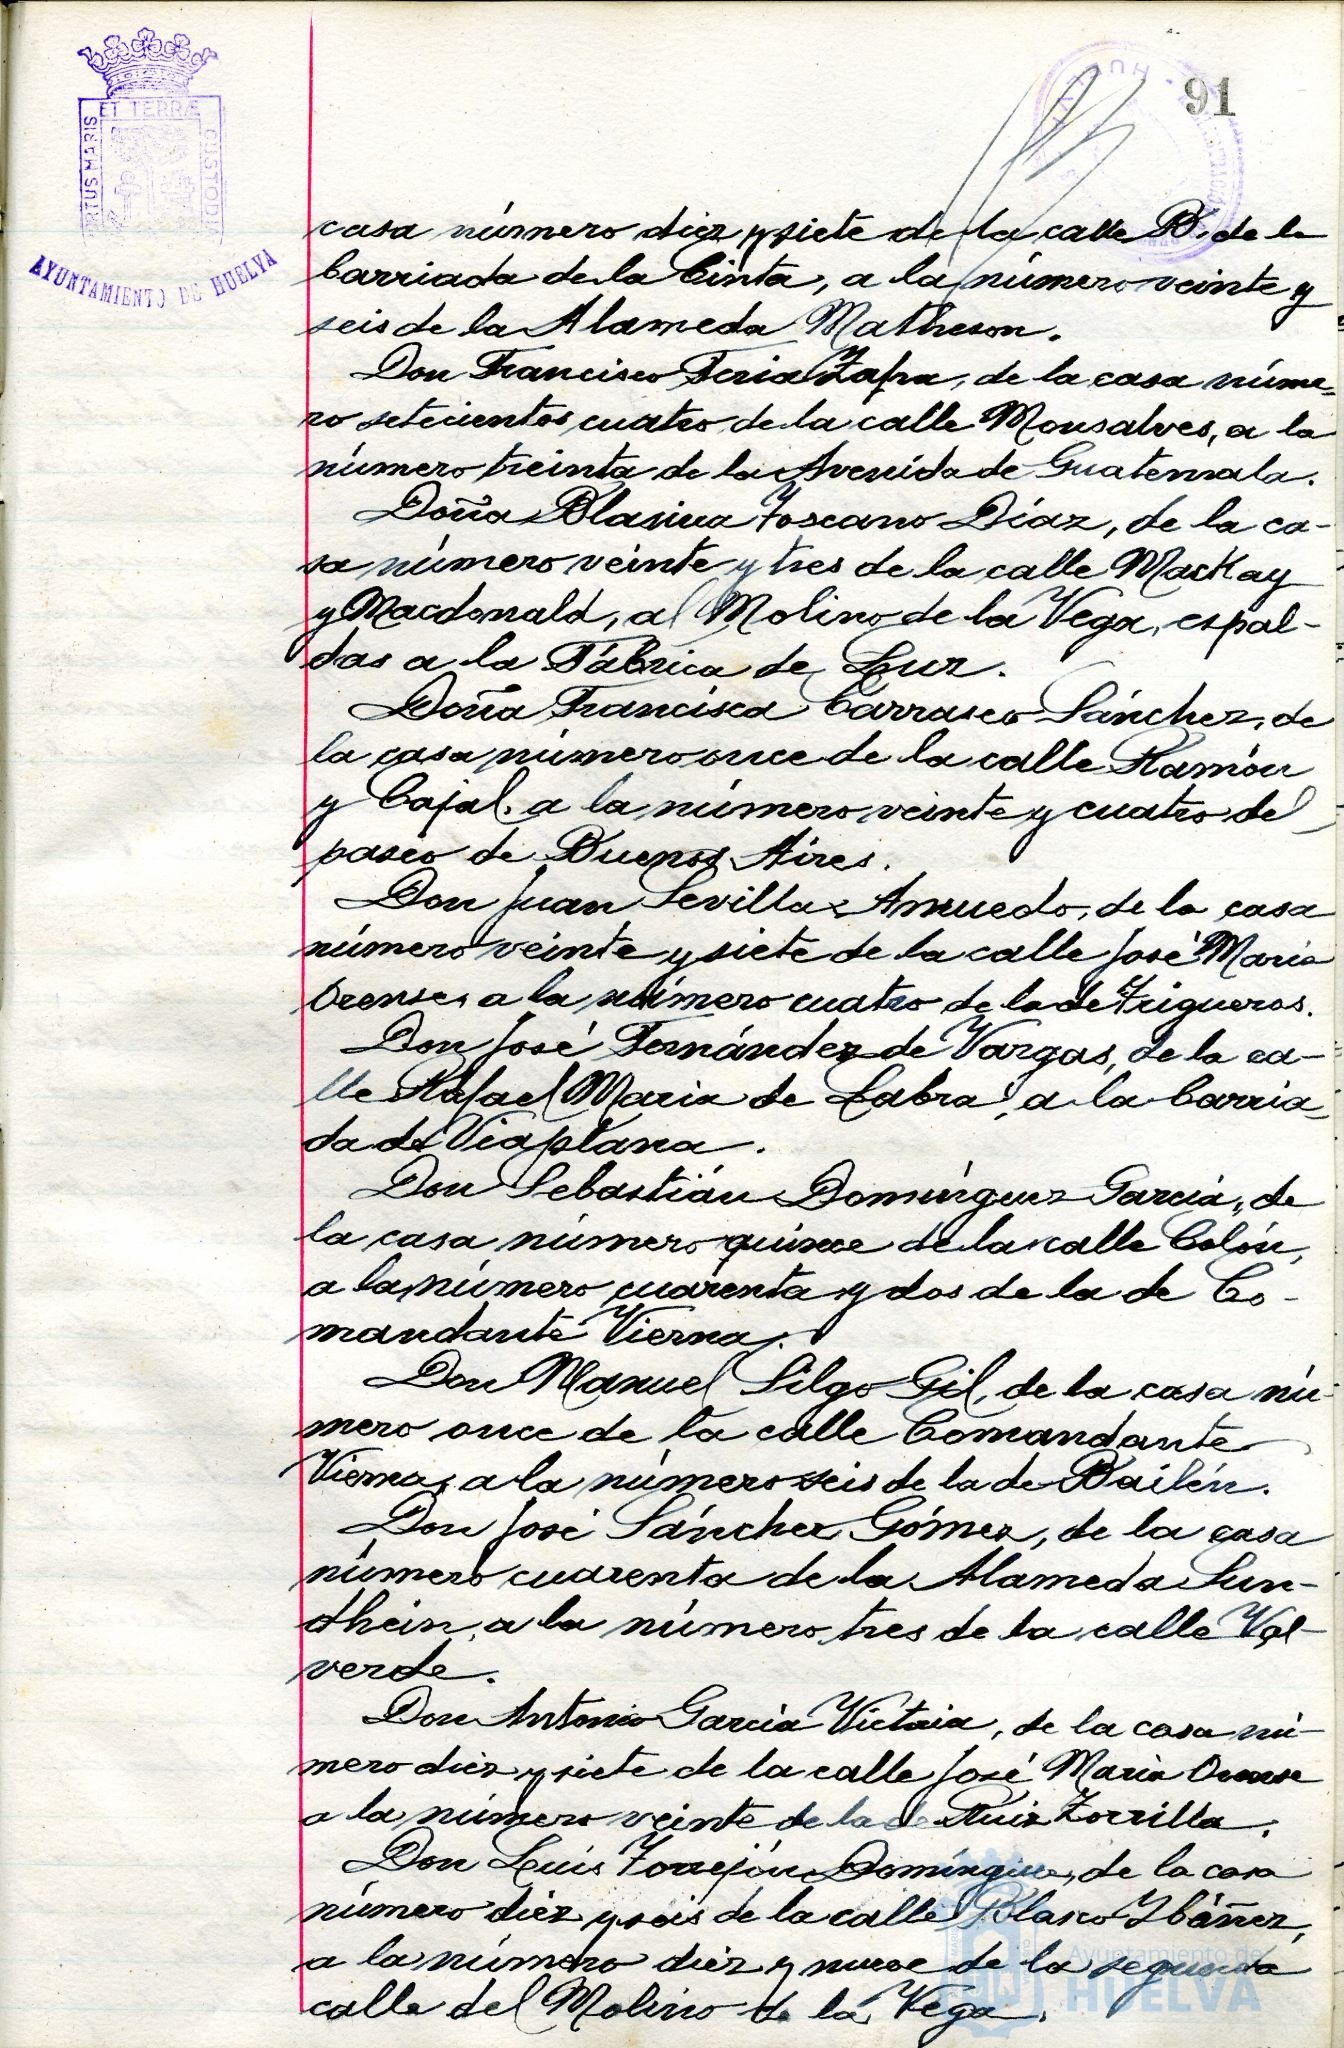 91
ET TERRÆ
PORTUS MARIS
CUSTODIA
AYUNTAMIENTO DE HUELVA
casa número diez y siete de la calle B. de la
barriada de la Cinta, a la número veinte y
seis de la Alameda Matheson.
Don Francisco Feria Zafra, de la casa núme-
ro setecientos cuatro de la calle Monsalves, a la
número treinta de la Avenida de Guatemala.
Doña Blasina Toscano Díaz, de la ca-
sa número veinte y tres de la calle Mackay
y Macdonald, al Molino de la Vega, espal-
das a la Fábrica de Luz.
Doña Francisca Carrasco Sánchez, de
la casa número once de la calle Ramón
y Cajal, a la número veinte y cuatro del
paseo de Buenos Aires.
Don Juan Sevilla Amuedo, de la casa
número veinte y siete de la calle José María
Orense, a la número cuatro de la de Trigueros.
Don José Fernández de Vargas, de la ca-
lle Rafael María de Labra, a la barria-
da de Viaplana.
Don Sebastián Domínguez García, de
la casa número quince de la calle Colón,
a la número cuarenta y dos de la de Co-
mandante Vierna.
Don Manuel Silgo Gil, de la casa nú-
mero once de la calle Comandante
Vierna, a la número seis de la de Bailén.
Don José Sánchez Gómez, de la casa
número cuarenta de la Alameda Sun-
dhein, a la número tres de la calle Val-
verde.
Don Antonio García Victoria, de la casa nú-
mero diez y siete de la calle José María Orense
a la número veinte de la de Ruiz Zorrilla.
Don Luis Torrejón Domínguez, de la casa
número diez y seis de la calle Blasco Ibáñez,
a la número diez y nueve de la segunda
calle del Molino de la Vega.
Ayuntamiento de
HUELVA